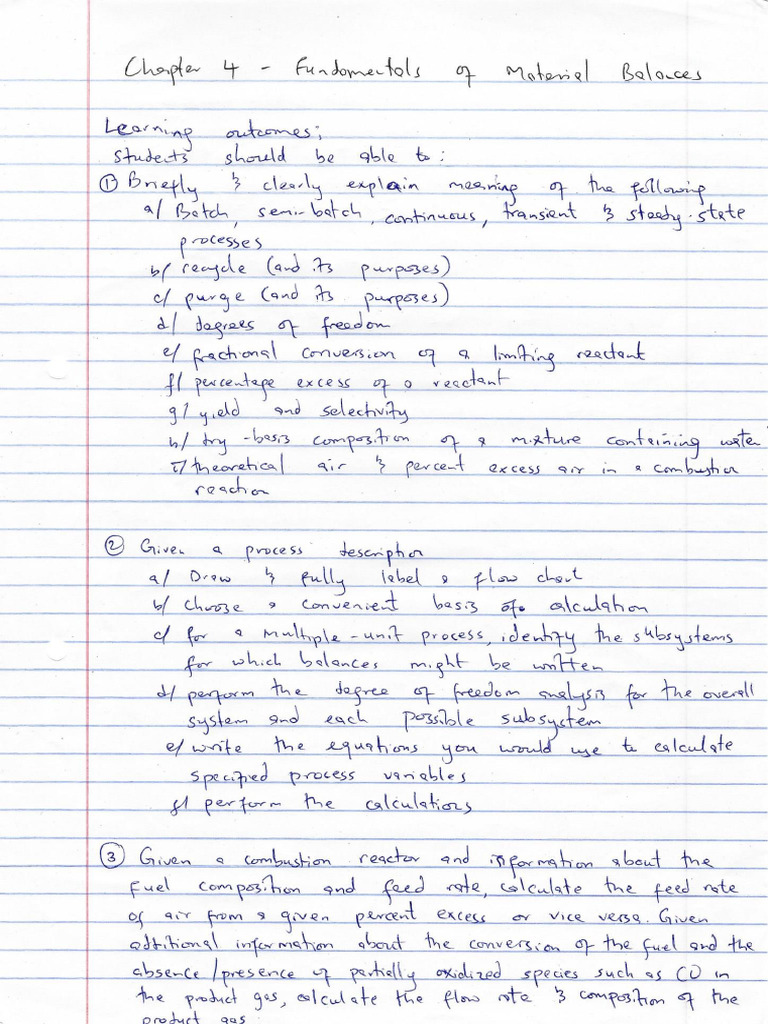 Chapter 4 - Fundamentals of Material Balances
Learning outcomes;
Students should be able to:
① Briefly & clearly explain meaning of the following
a/ Batch, semi-batch, continuous, transient & steady-state
processes
b/ recycle (and its purposes)
c/ purge (and its purposes)
d/ degrees of freedom
e/ fractional conversion of a limiting reactant
f/ percentage excess of a reactant
g/ yield and selectivity
h/ dry-basis composition of a mixture containing water
i/ theoretical air & percent excess air in a combustion
reaction
② Given a process description
a/ Draw & fully label a flow chart
b/ choose a convenient basis of calculation
c/ for a multiple-unit process, identify the subsystems
for which balances might be written
d/ perform the degree of freedom analysis for the overall
system and each possible subsystem
e/ write the equations you would use to calculate
specified process variables
f/ perform the calculations
③ Given a combustion reactor and information about the
fuel composition and feed rate, calculate the feed rate
of air from a given percent excess or vice versa. Given
additional information about the conversion of the fuel and the
absence/presence of partially oxidized species such as CO in
the product gas, calculate the flow rate & composition of the
product gas